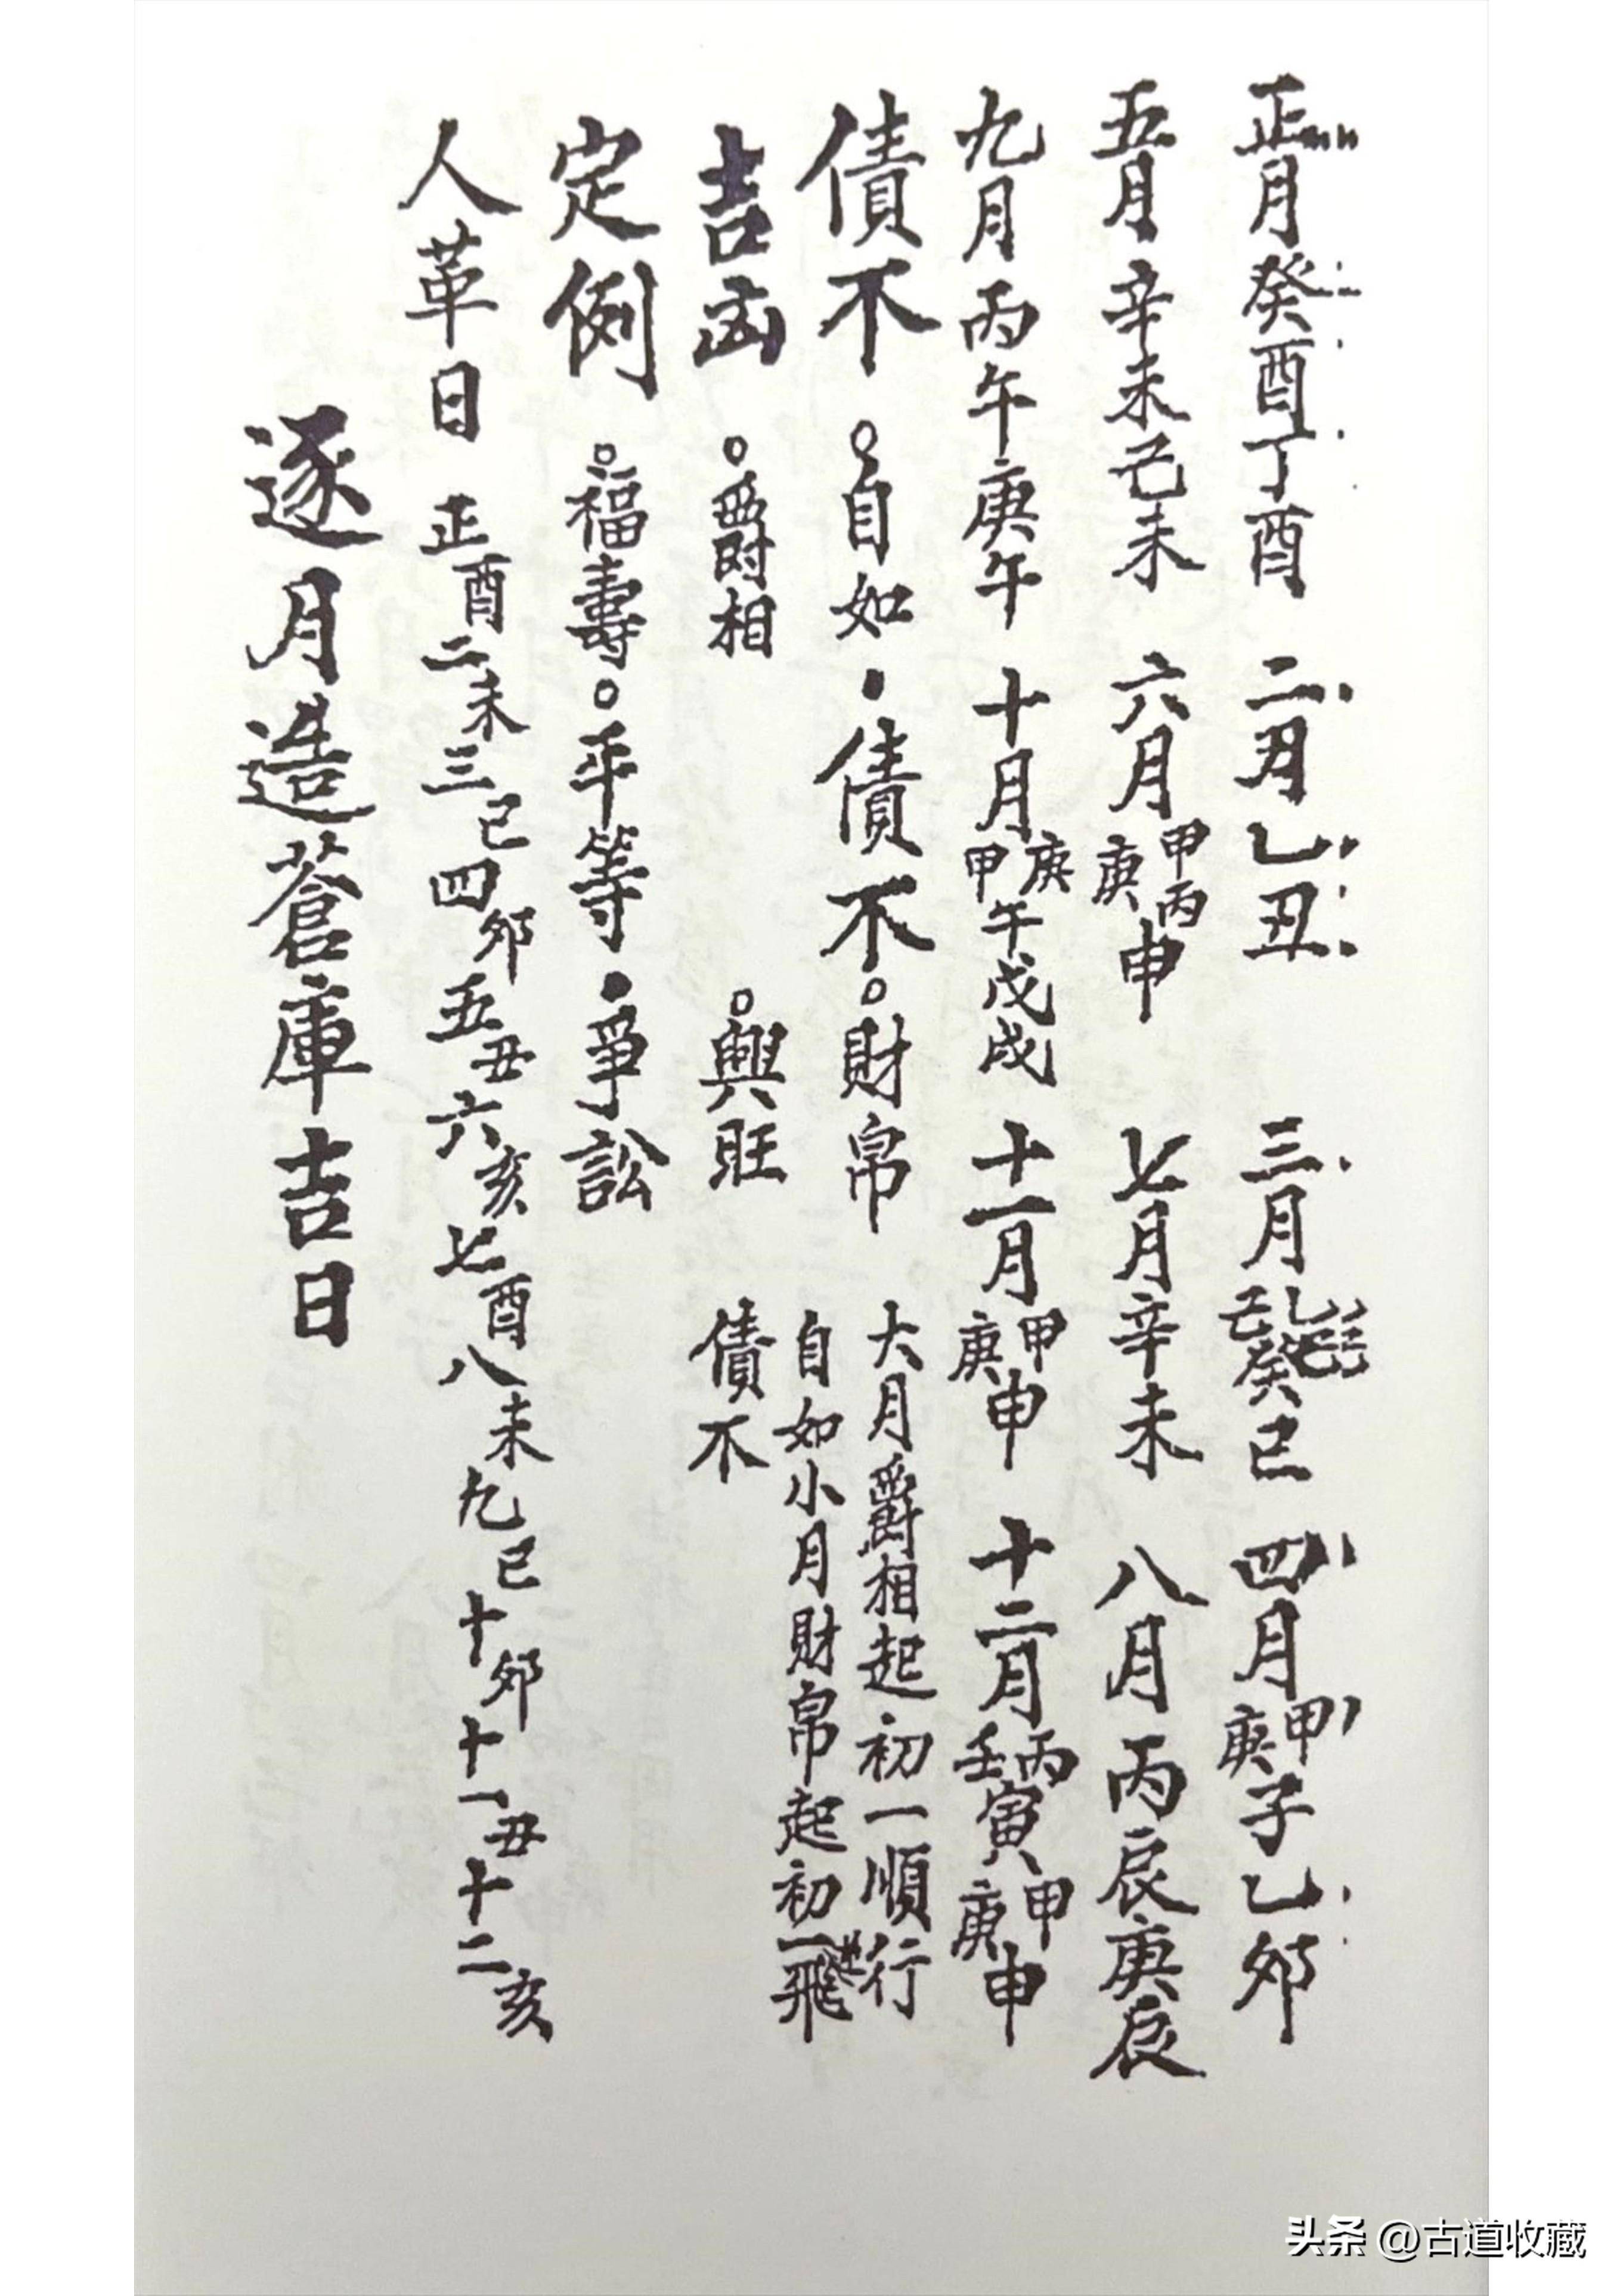 正月癸酉丁酉 二月乙丑 三月乙己癸巳 四月甲庚子乙卯
五月辛未己未 六月甲丙庚申 七月辛未 八月丙辰庚辰
九月丙午庚午 十月庚甲午戊戌 十一月甲庚申 十二月丙壬寅甲庚申
債不 ○自如 ·債不 ○財帛 大月爵相起初一順行
自如小月財帛起初一飛
吉凶 ○爵相 ○興旺 債不
定例 ○福壽 ○平等 ·爭訟
人革日 正酉二未三巳四卯五丑六亥七酉八未九巳十卯十一丑十二亥
逐月造蒼庫吉日
头条 @古道收藏